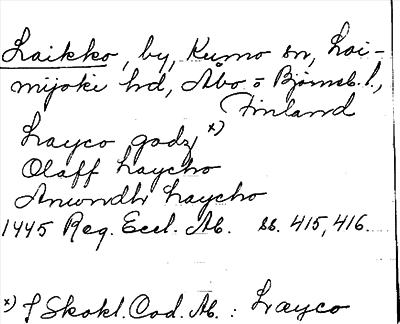 Laikko, by, Kumo sn, Loi-
mijoki hd, Åbo o Björneb. l.,
Finland
Layco godz x)
Olaff Laycho
Anundh Laycho
1445 Reg. Eccl. Ab. ss. 415, 416.
x) f Skokl. Cod. Ab. : Læyco